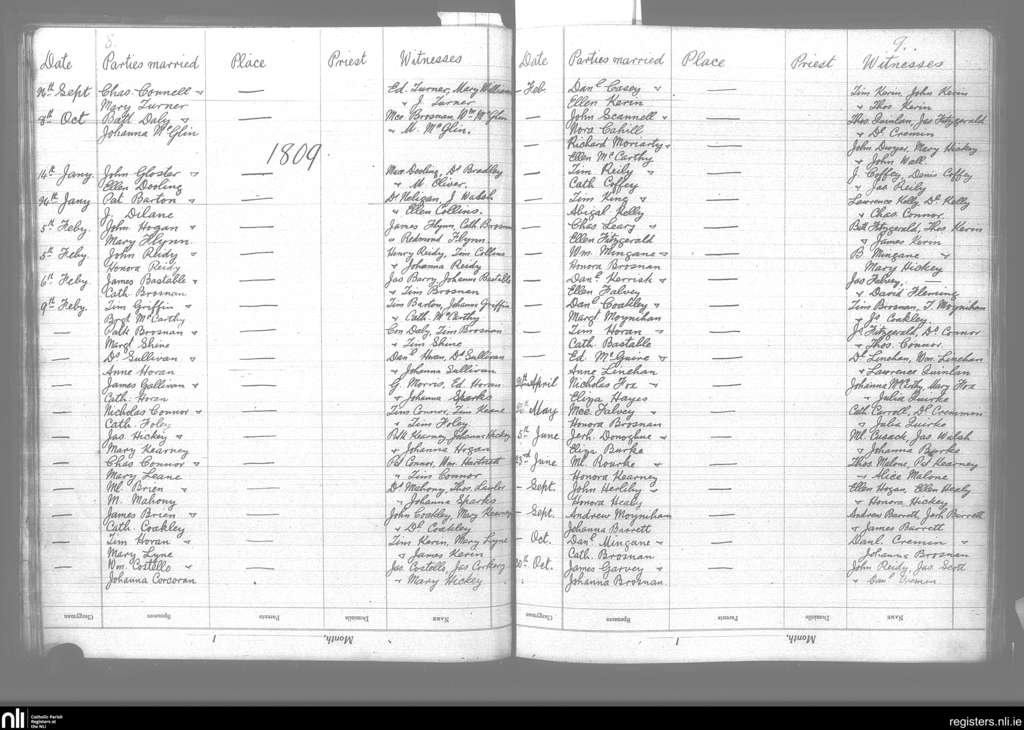 8.
Date Parties married Place Priest Witnesses
26th Sept Chas. Connell & — Ed. Turner, Mary Williams
Mary Turner & J. Turner
8th Oct Batt Daly & — Mce Brosnan, Wm McGlin
Johanna McGlin & M. McGlin.
1809
14th Jany. John Gloster & — Mce Dooling, Dl Bradley
Ellen Dooling & M. Oliver.
24th Jany Pat Barton & — Dl Neligan, J Walsh
J. Dilane & Ellen Collins.
5th Feby. John Hogan & — James Flynn, Cath Brosnan
Mary Flynn. & Redmond Flynn.
5th Feby. John Reidy & — Henry Reidy, Tim Collins
Honora Reidy & Johanna Reidy
6th Feby. James Bastable & — Jas Barry, Johanna Bastable
Cath Brosnan & Tim Brosnan
9th Feby. Tim Griffin & — Tim Barton, Johanna Griffin
Brgt McCarthy & Cath. McCarthy
— Patk Brosnan & — Con Daly, Tim Brosnan
Margt Shine & Tim Shine
— Dl Sullivan & — Danl Horan, Dl Sullivan
Anne Horan & Johanna Sullivan
— James Gallivan & — G. Morris, Ed. Horan
Cath. Horan & Johanna Sparks
— Nicholas Connor & — Tim Connor, Tim Keane
Cath. Foley & Tim Foley
— Jas. Hickey & — Patk Kearney, Johanna Hickey
Mary Kearney & Johanna Hogan
— Chas Connor & — Pat Connor, Wm Hartnett
Mary Leane & Tim Connor
— Ml. Brien & — Dl Mahony, Thos. Lawlor
M. Mahony & Johanna Sparks
— James Brien & — John Coakley, Mary Kearney
Cath. Coakley & Dl Coakley
— Tim Horan & — Tim Kerin, Mary Lyne
Mary Lyne & James Kerin
— Wm. Costello & — Jas. Costello, Jas Corkery
Johanna Corcoran & Mary Hickey
Clergyman Sponsors Parents Domicile Name
Month, 1
9.
Date Parties married Place Priest Witnesses
— Feb. Danl Casey & — Tim Kerin, John Kerin
Ellen Kerin & Thos Kerin
— John Scannell & — Thos Quinlan, Jas Fitzgerald
Nora Cahill & Dl Cremin
— Richard Moriarty & — John Dwyer, Mary Hickey
Ellen McCarthy & John Wall
— Tim Reily & — J. Coffey, Denis Coffey
Cath Coffey & Jas Reily
— Tim King & — Lawrence Kelly, Dl Kelly
Abigal Kelly & Chas. Connor
— Chas Leary & — Batt Fitzgerald, Thos Kerin
Ellen Fitzgerald & James Kerin
— Wm. Mingane & — B. Mingane &
Honora Brosnan Mary Hickey
— Danl. Kerrisk & — Jas Falvey,
Ellen Falvey & David Fleming
— Danl Coakley & — Tim Brosnan, T. Moynihan
Margt Moynihan & Js Coakley
— Tim Horan & — Js Fitzgerald, Dl Connor
Cath Bastable & Thos. Connor
— Ed. McGuire & — Dl Linehan, Wm. Linehan
Anne Linehan & Lawrence Quinlan
April Nicholas Fox & — Johanna McCarthy Mary Fox
Eliza Hayes & Julia Quirke
May Mce Falvey & — Cath Carroll, Dl Cremmin
Honora Brosnan & Julia Quirke
5th June Jerh. Donoghue & — Ml. Cusack, Jas Walsh
Eliza Burke & Johanna Burke
23rd June Ml. Rourke & — Thos Malone, Pat Kearney
Honora Kearney & Alice Malone
— Sept. John Herlihy & — Ellen Hogan, Ellen Healy
Honora Healy & Honora Hickey
— Sept. Andrew Moynihan — Andrew Barrett, Jerh Barrett
Johanna Barrett & James Barrett
— Oct. Danl Mingane & — Danl. Cremin &
Cath. Brosnan Johanna Brosnan
30th Oct. James Garvey & — John Reidy, Jas. Scott
Johanna Brosnan. & Danl Cremin
Clergyman Sponsors Parents Domicile Name
Month, 1
nli Catholic Parish
Registers at
the NLI
registers.nli.ie